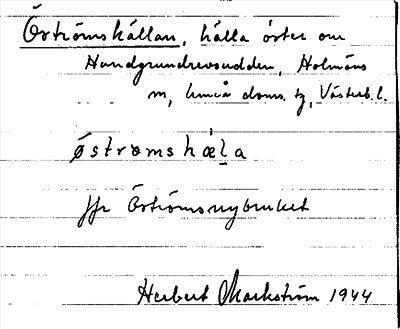 Öströmshällan, hälla öster om
Handgrundrevsudden, Holmöns
sn, Umeå doms. tg, Västerb. l.
østrømshæla
Jfr Öströmsnybruket
Herbert Markström 1944